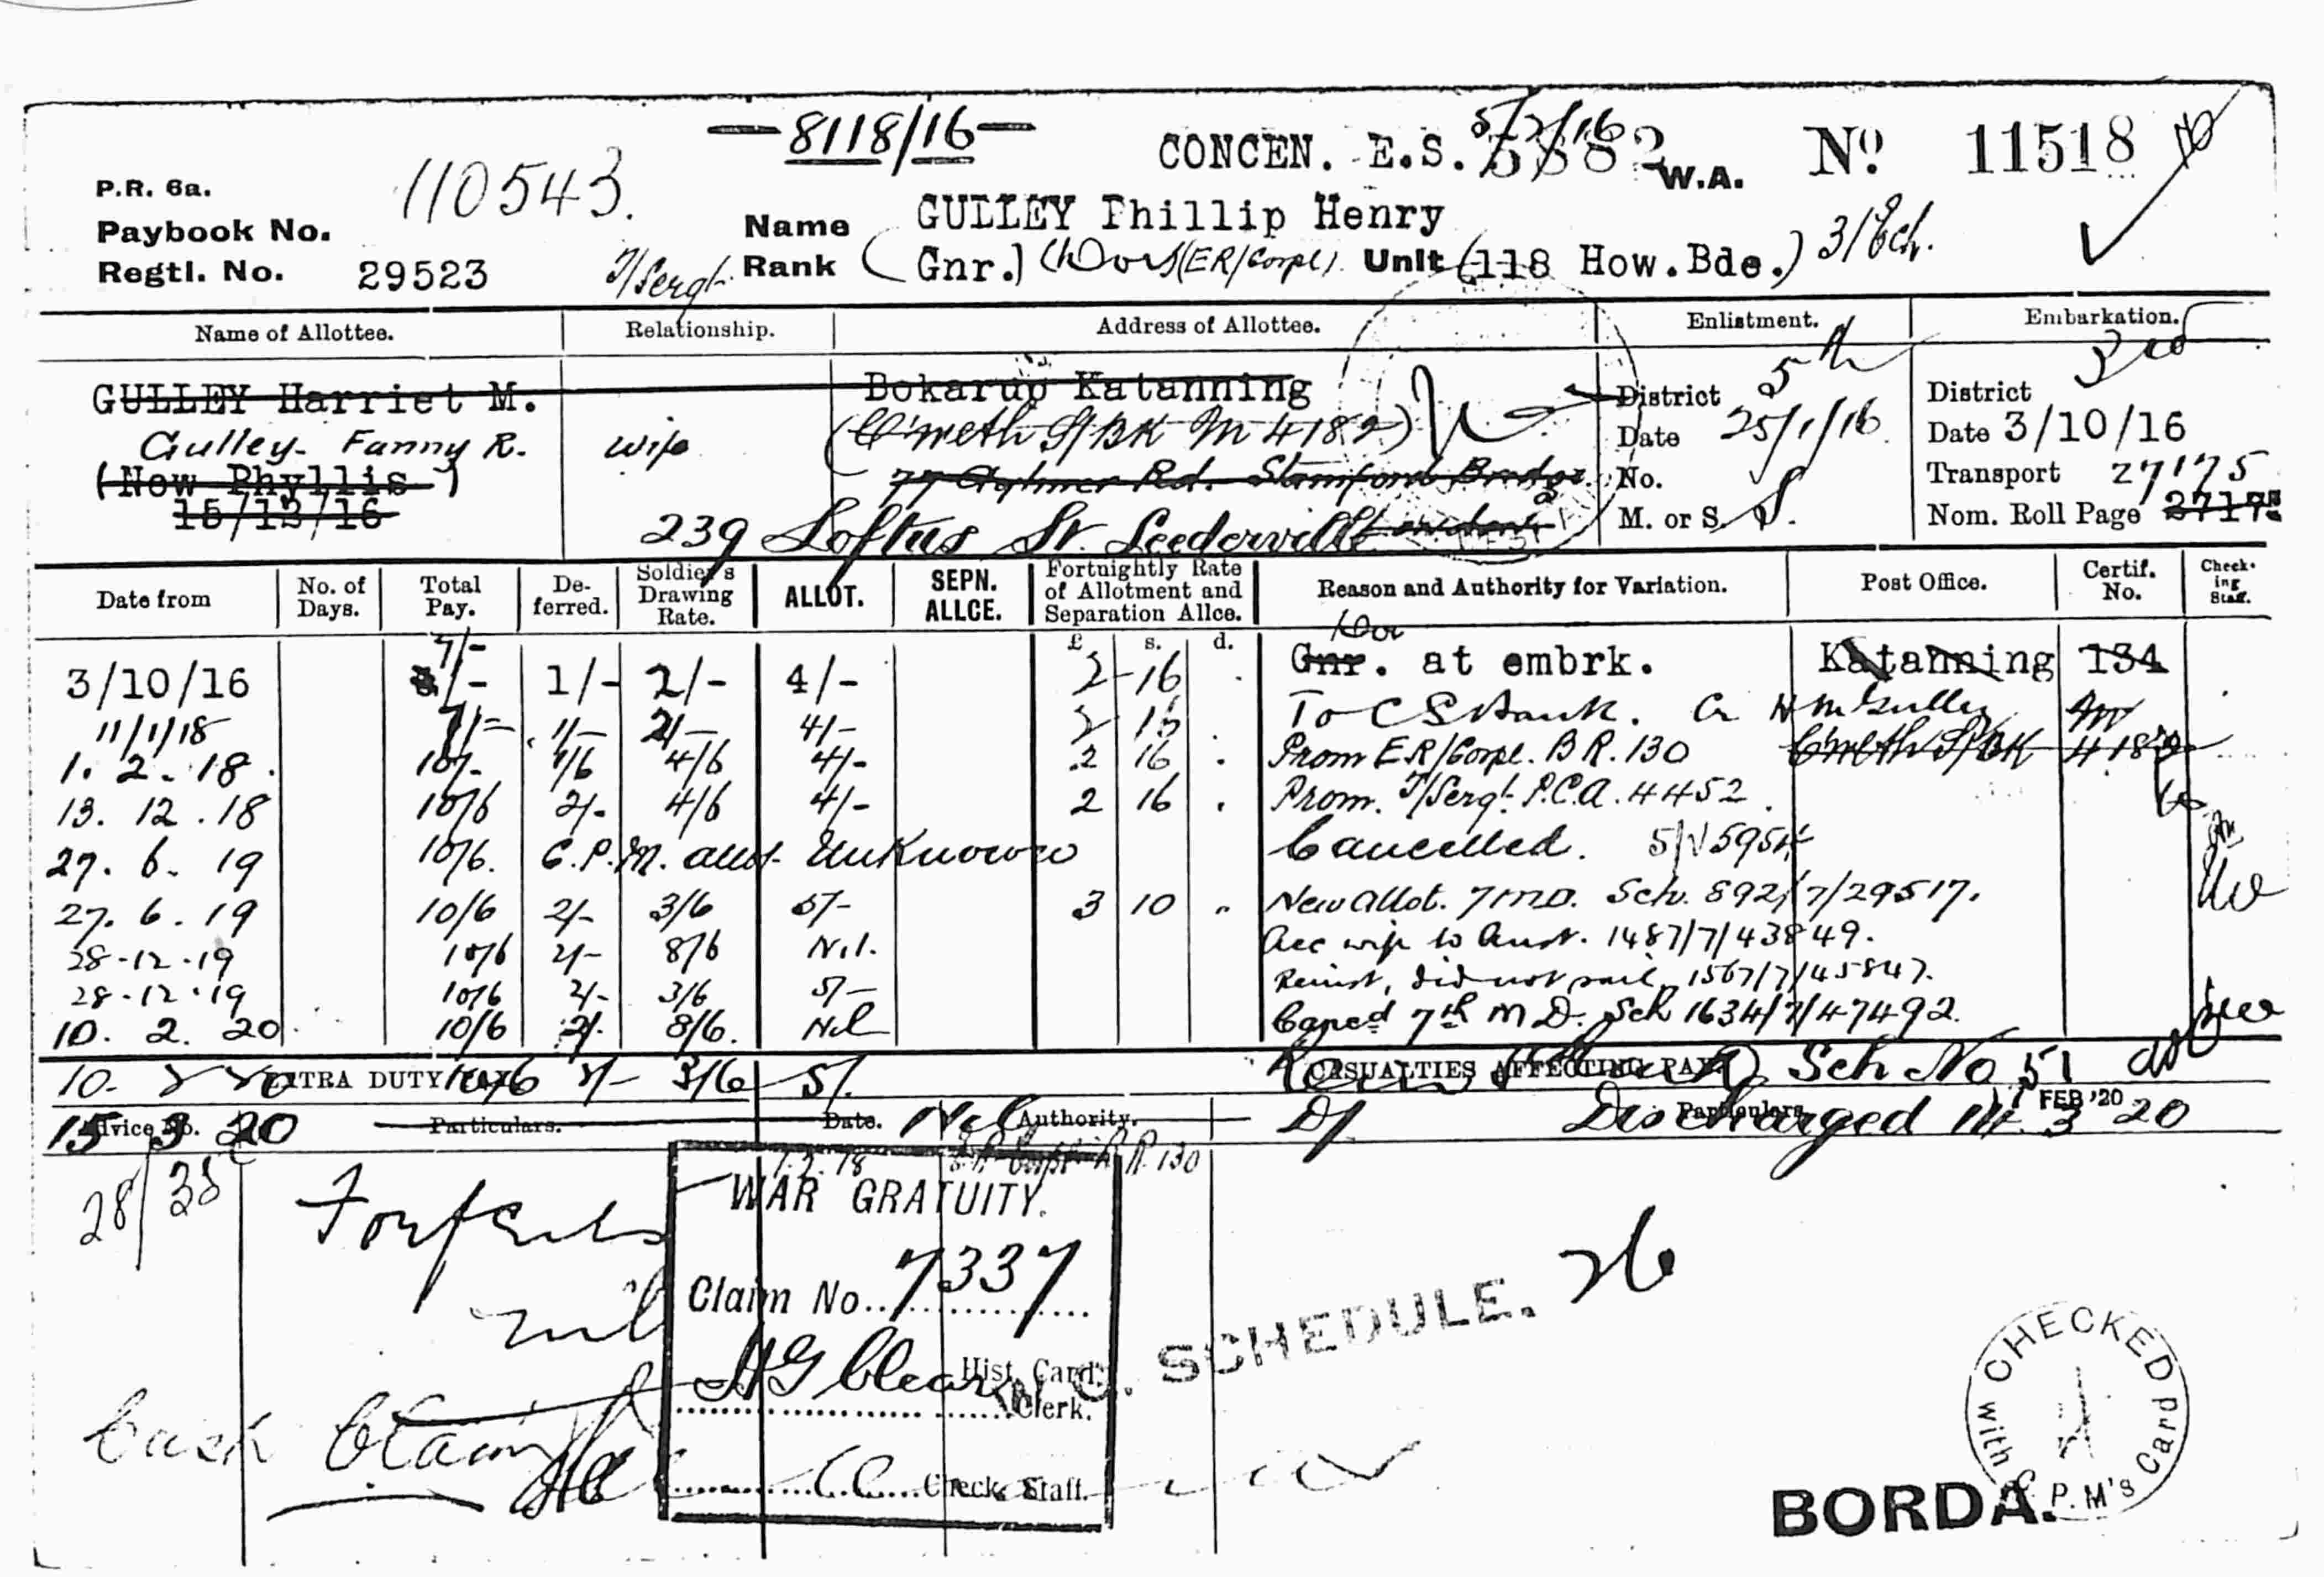 8118/16
CONCEN. E.S. 5382 5/2/16 W.A. No 11518
P.R. 6a.
Paybook No. 110543.
Name GULLEY Phillip Henry
Regtl. No. 29523 T/Sergt. Rank (Gnr.) (Dvr) (ER/Corpl). Unit (118 How.Bde.) 3/Ech.
Name of Allottee. Relationship. Address of Allottee. Enlistment. Embarkation.
GULLEY Harriet M. Bokarup Katanning District 5th District 3rd
Gulley. Fanny R. wife (C'wealth S/BK M 4182) Date 25/1/16. Date 3/10/16
(Now Phyllis) 77 Aylmer Rd. Stamford Bridge No. Transport 27175
15/12/16 M. or S. S. Nom. Roll Page 27175
239 Loftus St. Leederville London
Date from No. of Days. Total Pay. Deferred. Soldier's Drawing Rate. ALLOT. SEPN. ALLCE. Fortnightly Rate of Allotment and Separation Allce. Reason and Authority for Variation. Post Office. Certif. No. Checking Staff.
£ s. d.
3/10/16 7/- 1/- 2/- 4/- 2 16 Dvr Gnr. at embrk. Katanning 134
11/1/18 7/- 1/- 2/- 4/- 2 16 To C S Bank. Cr H M Gulley
1. 2. 18. 10/- 1/6 4/6 4/- 2 16 Prom ER/Corpl. BR. 130 C'wealth S/BK 4182
13. 12. 18 10/6 2/- 4/6 4/- 2 16 Prom. T/Sergt. P.C.A. 4452.
27. 6. 19 10/6. C.P.M. allot Unknown Cancelled. S/N 5954
27. 6. 19 10/6 2/- 3/6 5/- 3 10 New allot. 7 MD. Sch. 892/7/29517.
28-12-19 10/6 2/- 8/6 Nil. Acc wife to Aust. 1487/7/43849.
28-12-19 10/6 2/- 3/6 5/- Reinst, did not sail, 1567/7/45847.
10. 2. 20 10/6 2/- 8/6. Nil Canced 7th M D. Sch 1634/7/47492.
EXTRA DUTY PAY. CASUALTIES AFFECTING PAY
10- 2 20 10/6 2/- 3/6 5/. Sch No 51
FEB '20
Advice No. Particulars. Date. Authority. Particulars.
15 3 20 Nil Discharged 14. 3 20
1.2.18 R. 130
28/38 Forfeits
nil
WAR GRATUITY.
Claim No. 7337
Hist. Card. Clerk.
Check. Staff.
Cask Claim
SCHEDULE. 26
CHECKED with C.P.M's Card
BORDA.